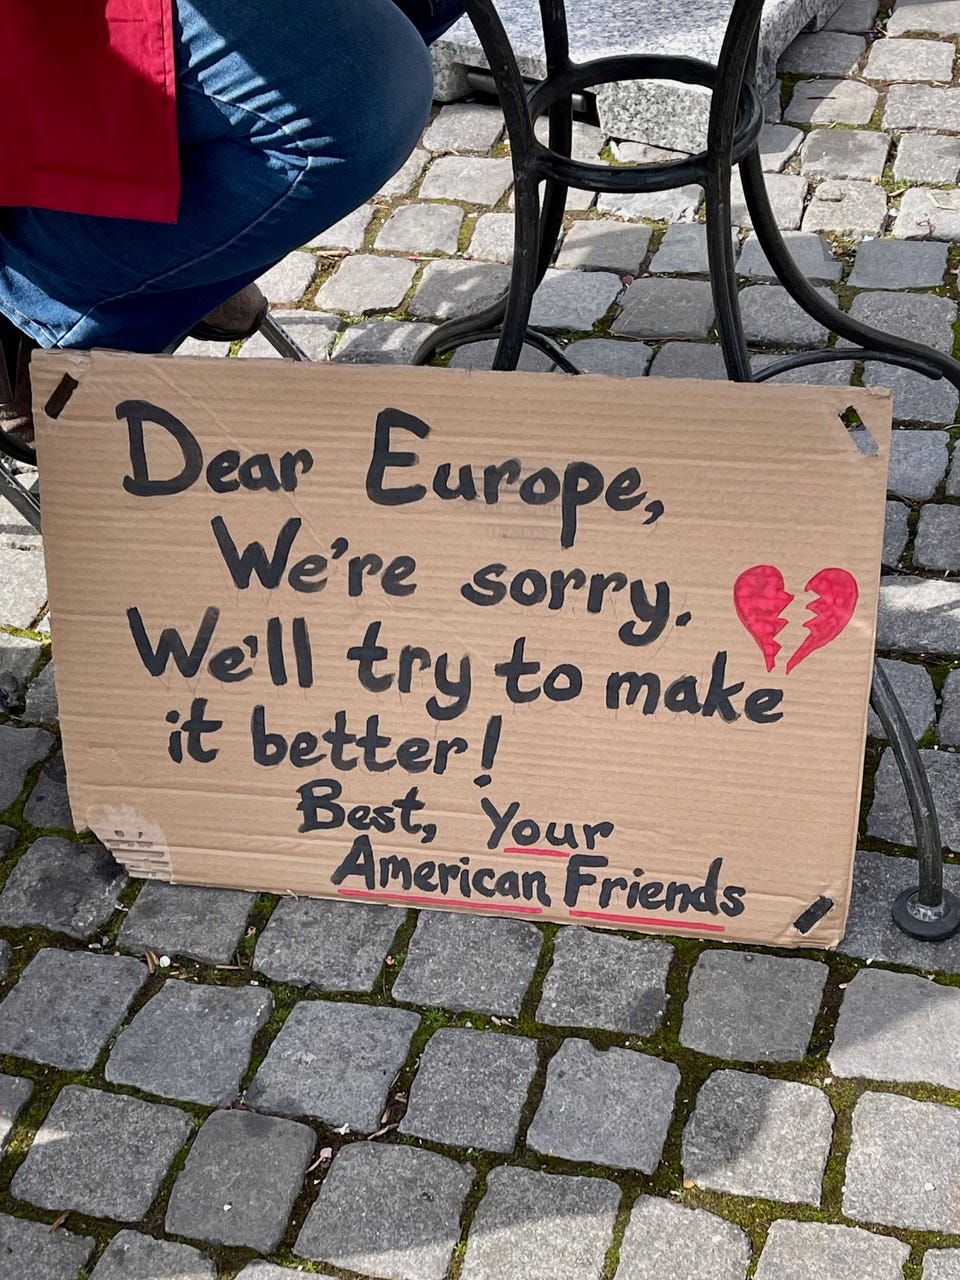 Dear Europe,
We're sorry.
We'll try to make
it better!
Best, Your
American Friends